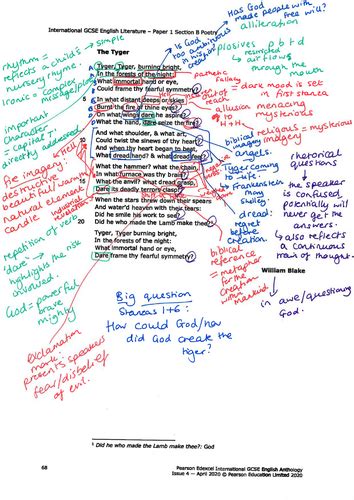 International GCSE English Literature – Paper 1 Section B Poetry
The Tyger
Tyger, Tyger, burning bright,
In the forests of the night:
What immortal hand or eye,
Could frame thy fearful symmetry?
In what distant deeps or skies
Burnt the fire of thine eyes?
On what wings dare he aspire?
What the hand, dare seize the fire?
And what shoulder, & what art,
Could twist the sinews of thy heart?
And when thy heart began to beat,
What dread hand? & what dread feet?
What the hammer? what the chain,
In what furnace was thy brain?
What the anvil? what dread grasp,
Dare its deadly terrors clasp?
When the stars threw down their spears
And water'd heaven with their tears:
Did he smile his work to see?
Did he who made the Lamb make thee?¹
20
Tyger Tyger, burning bright,
In the forests of the night:
What immortal hand or eye,
Dare frame thy fearful symmetry?
William Blake
rhythm = simple
reflects a child's
nursery rhyme.
Ironic = complex
message/
important
character
= capital 'T'
directly addressed
fire imagery:
destructive
beautiful/warm
natural element
candle
repetition of verb
'dare' - risk
highlights the risk
involved.
God = powerful
brave
mighty
exclamation
mark:
presents speakers
fear/disbelief
of evil.
Has God
made people with
free will?
alliteration
is God
too ambitious
in creation?
plosives p b t d
restricted
airflows
through the
mouth
pathetic
fallacy
= dark mood is set
in first stanza
out of
reach
allusion
H + H
menacing
mysterious
biblical
imagery
religious = mysterious
imagery
angels.
Tyger coming
to life.
Frankenstein
Mary
Shelley
dread:
regret
before
creation.
biblical
reference
= metaphor
for the
creation
mankind
rhetorical
questions
the speaker
is confused,
potentially will
never get the
answers.
also reflects
a continuous
train of thought.
in awe/questioning
God.
Big question
Stanzas 1+6:
How could God/how
did God create the
tiger?
¹ Did he who made the Lamb make thee?: God
68
Pearson Edexcel International GCSE English Anthology
Issue 4 — April 2020 © Pearson Education Limited 2020